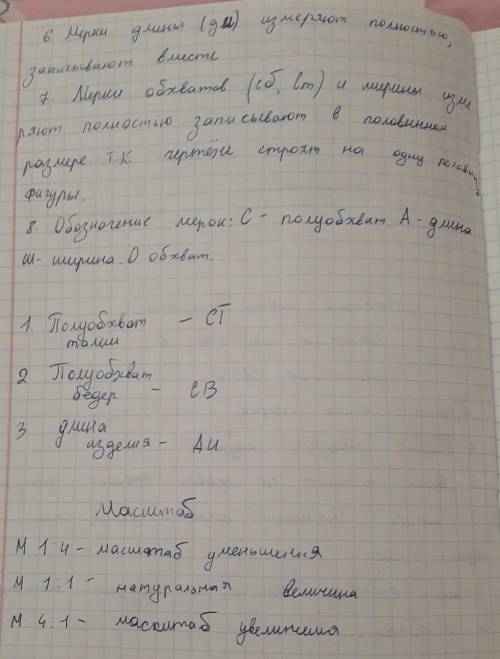 6. Мерки длины (ди) измеряют полностью,
записывают вместе
7. Мерки обхватов (сб, вт) и ширины изме
ряют полностью записывают в половинном
размере т.к чертёжи строят на одну половину
фигуры.
8. Обозначение мерок: С - полуобхват. А - длина
Ш- ширина. О обхват.
1. Полуобхват - СТ
талии
2 Полуобхват
бедер - СВ
3 длина
изделия - ДИ
Масштаб
М 1:4 - масштаб уменьшения
М 1:1 - натуральная величина
М 4:1 - масштаб увеличения